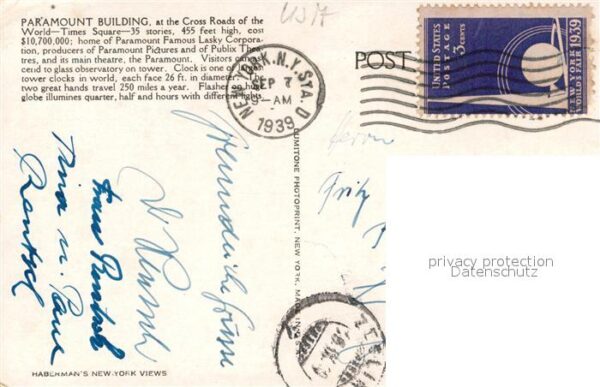 PARAMOUNT BUILDING, at the Cross Roads of the
World—Times Square—35 stories, 455 feet high, cost
$10,700,000; home of Paramount Famous Lasky Corpora-
tion, producers of Paramount Pictures and of Publix Thea-
tres, and its main theatre, the Paramount. Visitors can as-
cend to glass observatory on tower. Clock is one of largest
tower clocks in world, each face 26 ft. in diameter. The
two great hands travel 250 miles a year. Flasher on huge
globe illumines quarter, half and hours with different lights.
USA
POST
NEW YORK, N.Y. STA. D
SEP 7
9-AM
1939
UNITED STATES
POSTAGE
3 CENTS
NEW YORK 1939
WORLD'S FAIR
Herrn
Fritz
Freundliche Grüsse
LUMITONE PHOTOPRINT. NEW YORK. MADE IN
privacy protection
Datenschutz
HABERMAN'S NEW-YORK VIEWS